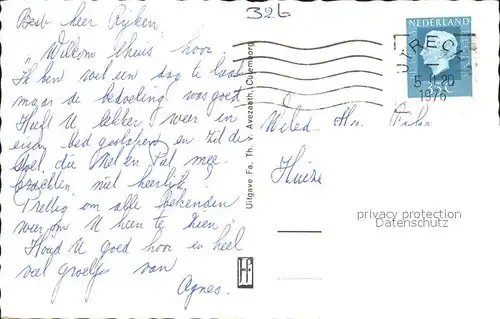 326
Beste heer Rijken
"Willem thuis" hoor.
Ik ben wel een dag te laat
maar de bedoeling was goed
Heeft U lekker weer in
eigen bed geslapen en zit de
stoel, die Nel en Pal mee-
brachten, niet heerlijk?
Prettig om alle bekenden
weer om U heen te zien.
Houd U goed hoor en heel
veel groetjes van
Agnes.
Uitgave Fa. Th. v. Avezaath, Culemborg
NEDERLAND
UTRECHT
1976
Huize
privacy protection
Datenschutz